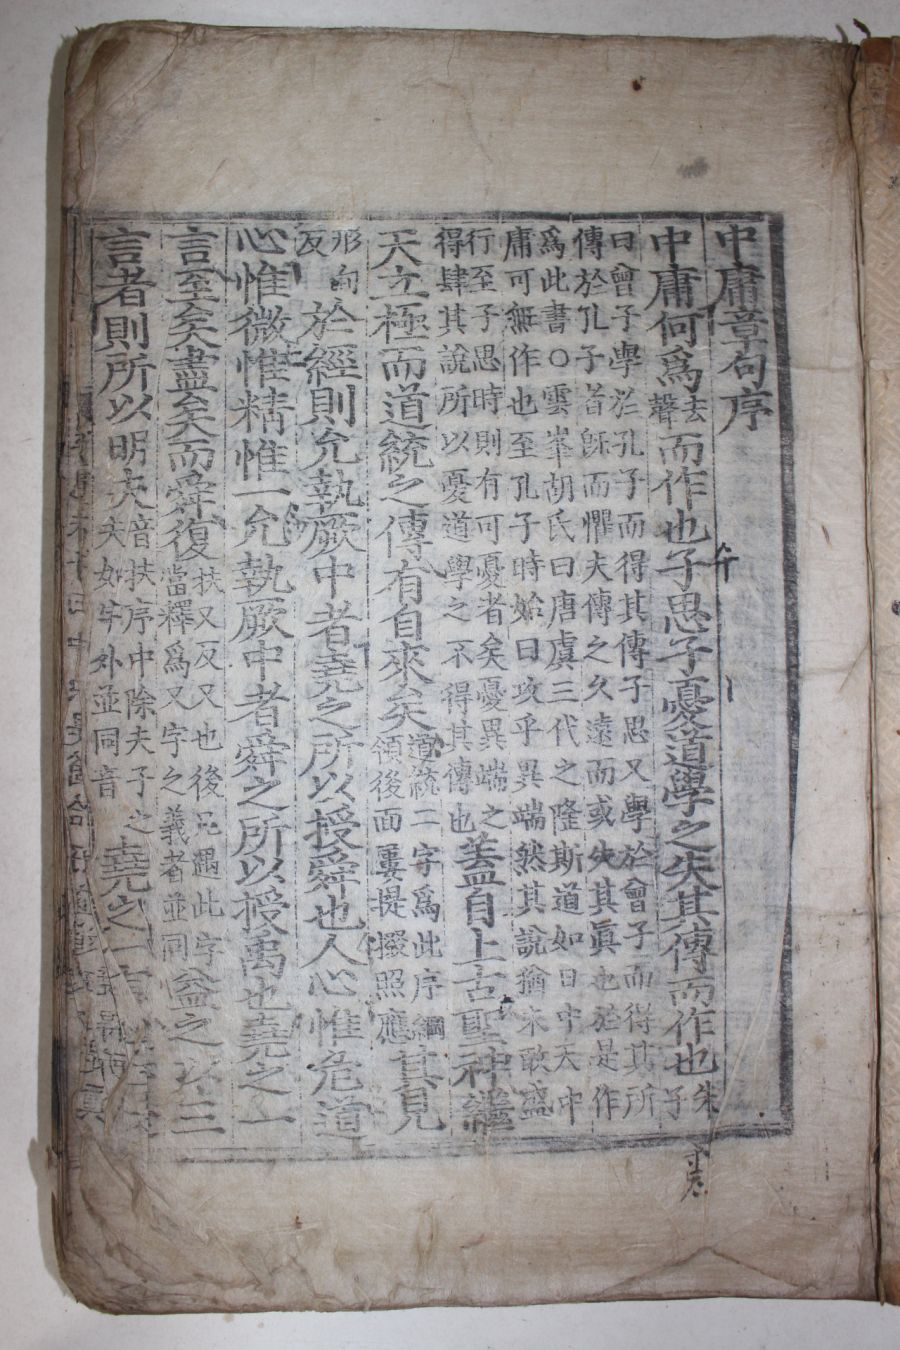 中庸章句序
中庸何爲去聲而作也子思子憂道學之失其傳而作也朱子
曰曾子學於孔子而得其傳子思又學於曾子而得其所
傳於孔子者旣而懼夫傳之久遠而或失其眞也於是作
爲此書○雲峯胡氏曰唐虞三代之隆斯道如日中天中
庸可無作也至孔子時始曰攻乎異端然其說猶未敢盛
行至子思時則有可憂者矣憂異端之
得肆其說所以憂道學之不得其傳也
蓋自上古聖神繼
天立極而道統之傳有自來矣道統二字爲此序綱領後面屢提掇照應其見
形甸反於經則允執厥中者堯之所以授舜也人心惟危道
心惟微惟精惟一允執厥中者舜之所以授禹也堯之一
言至矣盡矣而舜復扶又反又也後凡遇此字當釋爲又字之義者並同益之以三
言者則所以明夫音扶序中除夫子之夫如字外並同音堯之一言